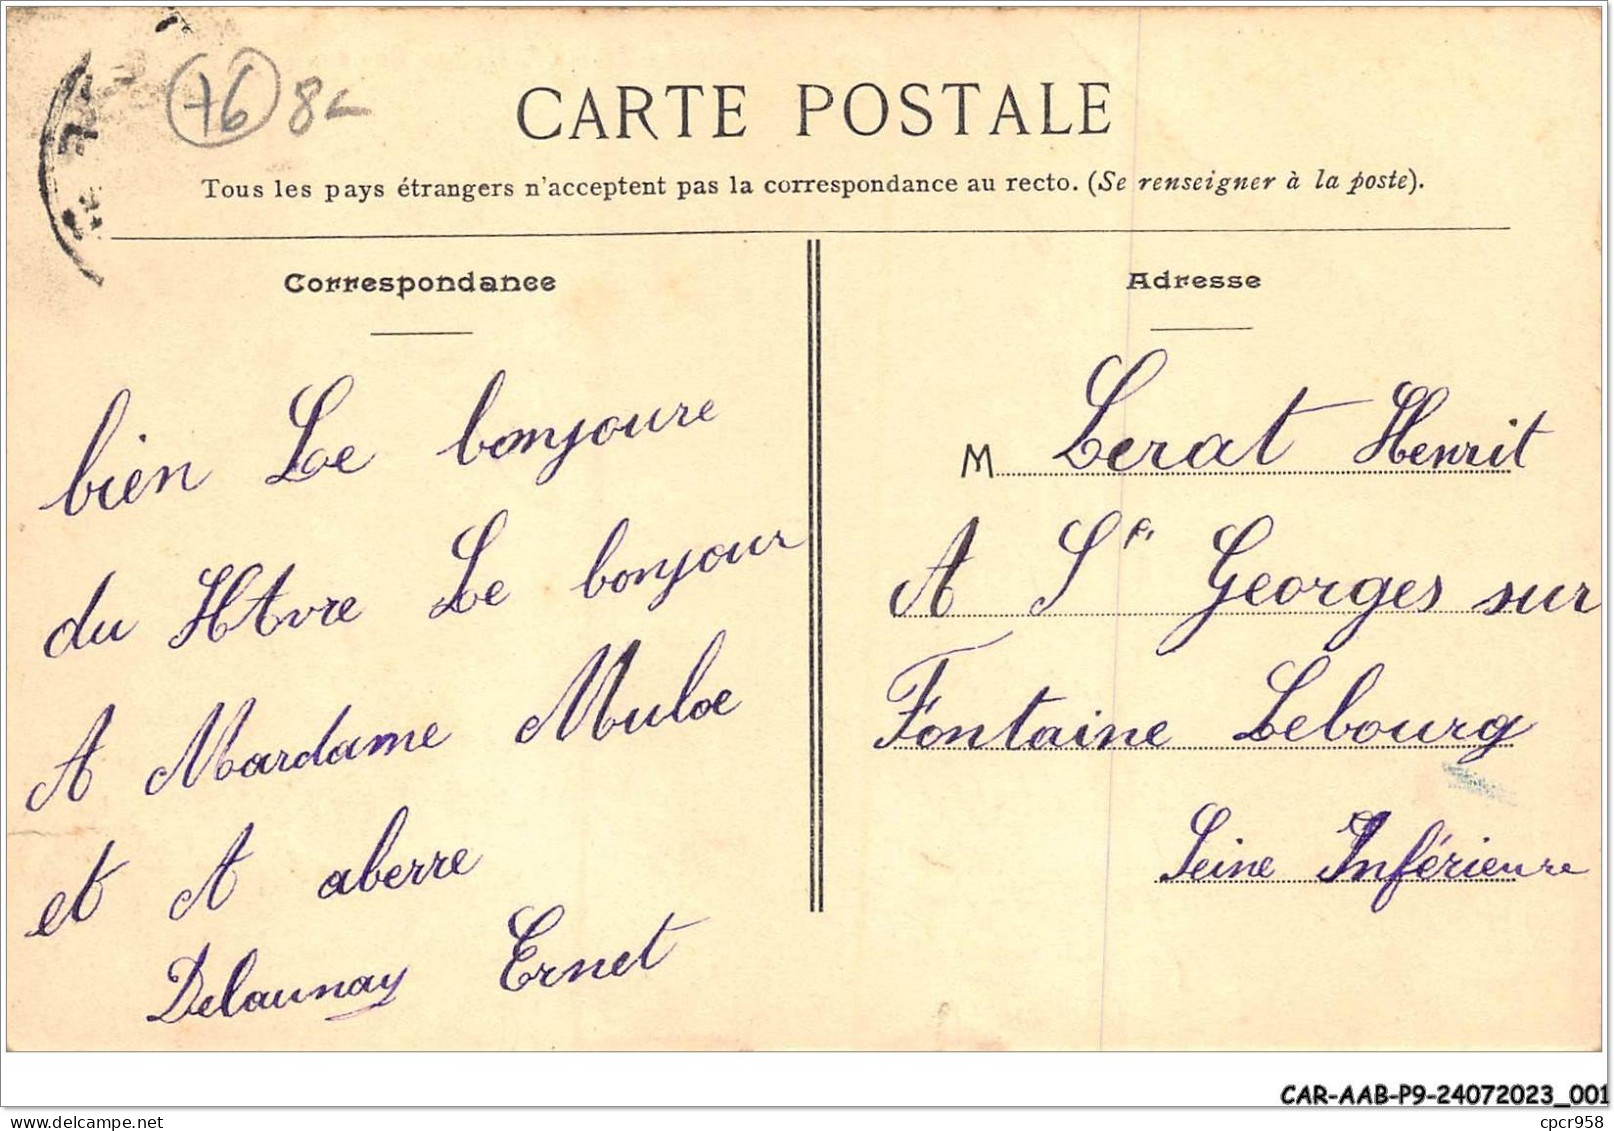 76 8
CARTE POSTALE
Tous les pays étrangers n'acceptent pas la correspondance au recto. (Se renseigner à la poste).
Correspondance
bien Le bonjoure
du HAvre Le bonjour
A Mardame Muloe
et A aberre
Delaunay Ernet
Adresse
M Lerat Henrit
A St Georges sur
Fontaine Lebourg
Seine Inférieure
CAR-AAB-P9-24072023_001
www.delcampe.net
cpcr958